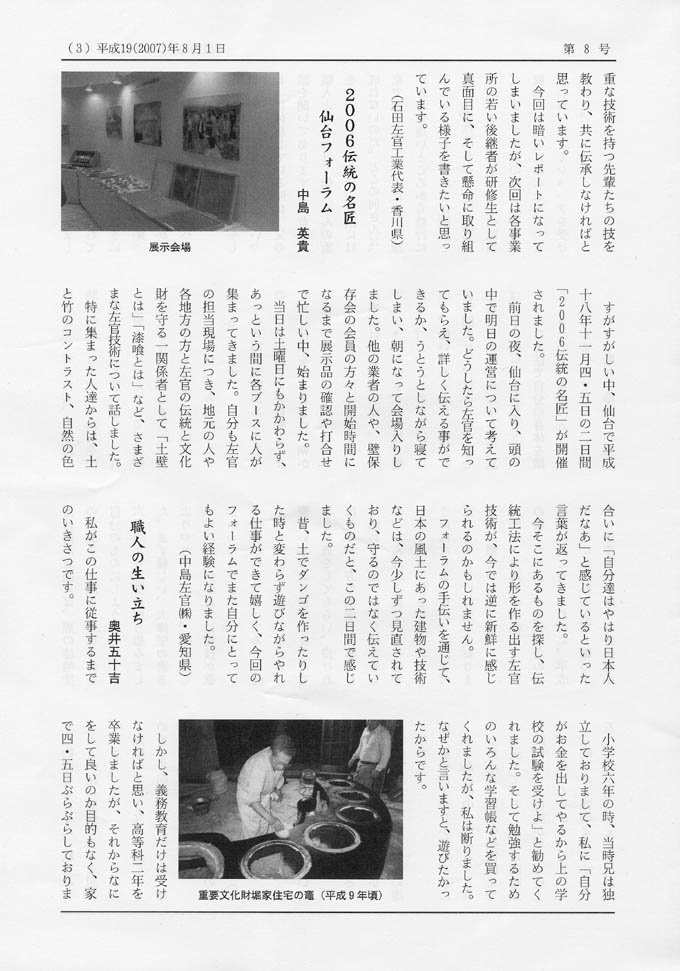 (3) 平成19(2007)年8月1日
第8号
重な技術を持つ先輩たちの技を
教わり、共に伝承しなければと
思っています。
今回は暗いレポートになって
しまいましたが、次回は各事業
所の若い後継者が研修生として
真面目に、そして懸命に取り組
んでいる様子を書きたいと思っ
ています。
(石田左官工業代表・香川県)
2006伝統の名匠
仙台フォーラム
中島 英貴
展示会場
すがすがしい中、仙台で平成
十八年十一月四・五日の二日間
「2006伝統の名匠」が開催
されました。
前日の夜、仙台に入り、頭の
中で明日の運営について考えて
いました。どうしたら左官を知っ
てもらえ、詳しく伝える事がで
きるか、うとうとしながら寝て
しまい、朝になって会場入りし
ました。他の業者の人や、壁保
存会の会員の方々と開始時間に
なるまで展示品の確認や打合せ
で忙しい中、始まりました。
当日は土曜日にもかかわらず、
あっという間に各ブースに人が
集まってきました。自分も左官
の担当現場につき、地元の人や
各地方の方と左官の伝統と文化
財を守る一関係者として「土壁
とは」「漆喰とは」など、さまざ
まな左官技術について話しました。
特に集まった人達からは、土
と竹のコントラスト、自然の色
合いに「自分達はやはり日本人
だなあ」と感じているといった
言葉が返ってきました。
今そこにあるものを探し、伝
統工法により形を作る出す左官
技術が、今では逆に新鮮に感じ
られるのかもしれません。
フォーラムの手伝いを通じて、
日本の風土にあった建物や技術
などは、今少しずつ見直されて
おり、守るのではなく伝えてい
くものだと、この二日間で感じ
ました。
昔、土でダンゴを作ったりし
た時と変わらず遊びながらやれ
る仕事ができて嬉しく、今回の
フォーラムでまた自分にとって
もよい経験になりました。
(中島左官㈱・愛知県)
職人の生い立ち
奥井五十吉
私がこの仕事に従事するまで
のいきさつです。
小学校六年の時、当時兄は独
立しておりまして、私に「自分
がお金を出してやるから上の学
校の試験を受けよ」と勧めてく
れました。そして勉強するため
のいろんな学習帳などを買って
くれましたが、私は断りました。
なぜかと言いますと、遊びたかっ
たからです。
重要文化財堀家住宅の竈(平成9年頃)
しかし、義務教育だけは受け
なければと思い、高等科二年を
卒業しましたが、それからなに
をして良いのか目的もなく、家
で四・五日ぶらぶらしておりま